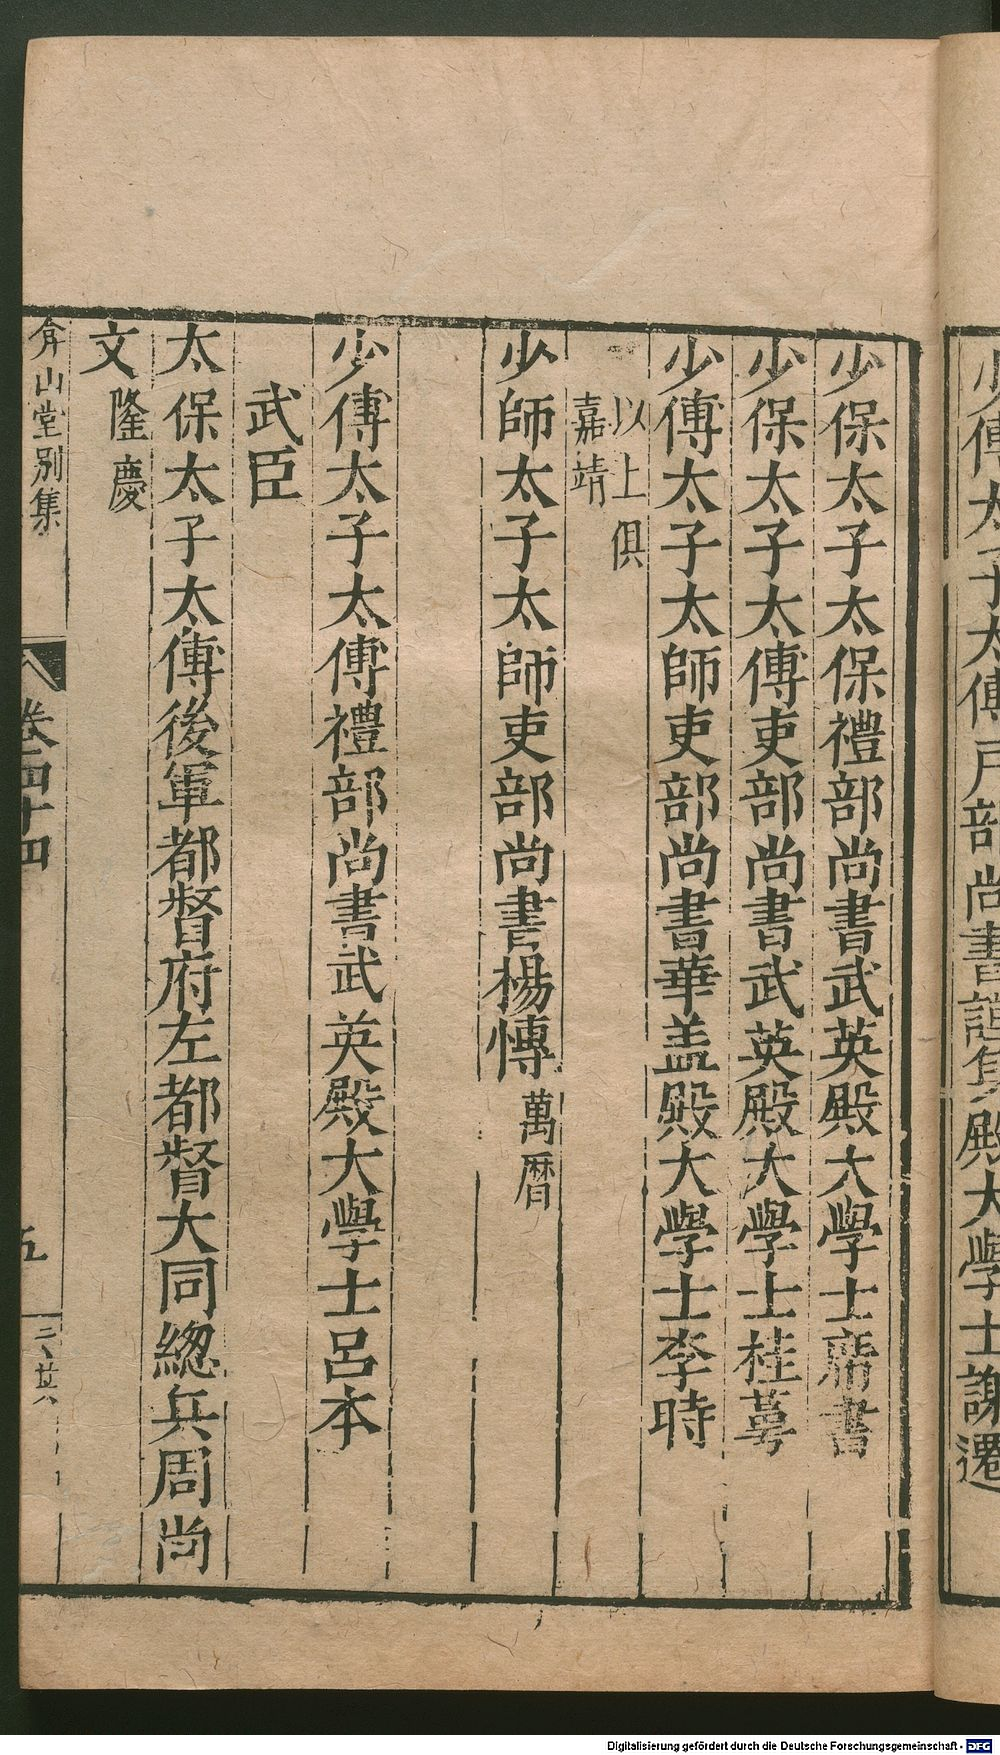 少傅太子太傅戶部尚書謹身殿大學士謝遷
少保太子太保禮部尚書武英殿大學士席書
少保太子太傅吏部尚書武英殿大學士桂萼
少傅太子太師吏部尚書華盖殿大學士李時
以上俱
嘉靖
少師太子太師吏部尚書楊慱萬曆
少傅太子太傅禮部尚書武英殿大學士呂本
武臣
太保太子太傅後軍都督府左都督大同總兵周尚
文隆慶
弇山堂別集
卷四十四
五
Digitalisierung gefördert durch die Deutsche Forschungsgemeinschaft - DFG